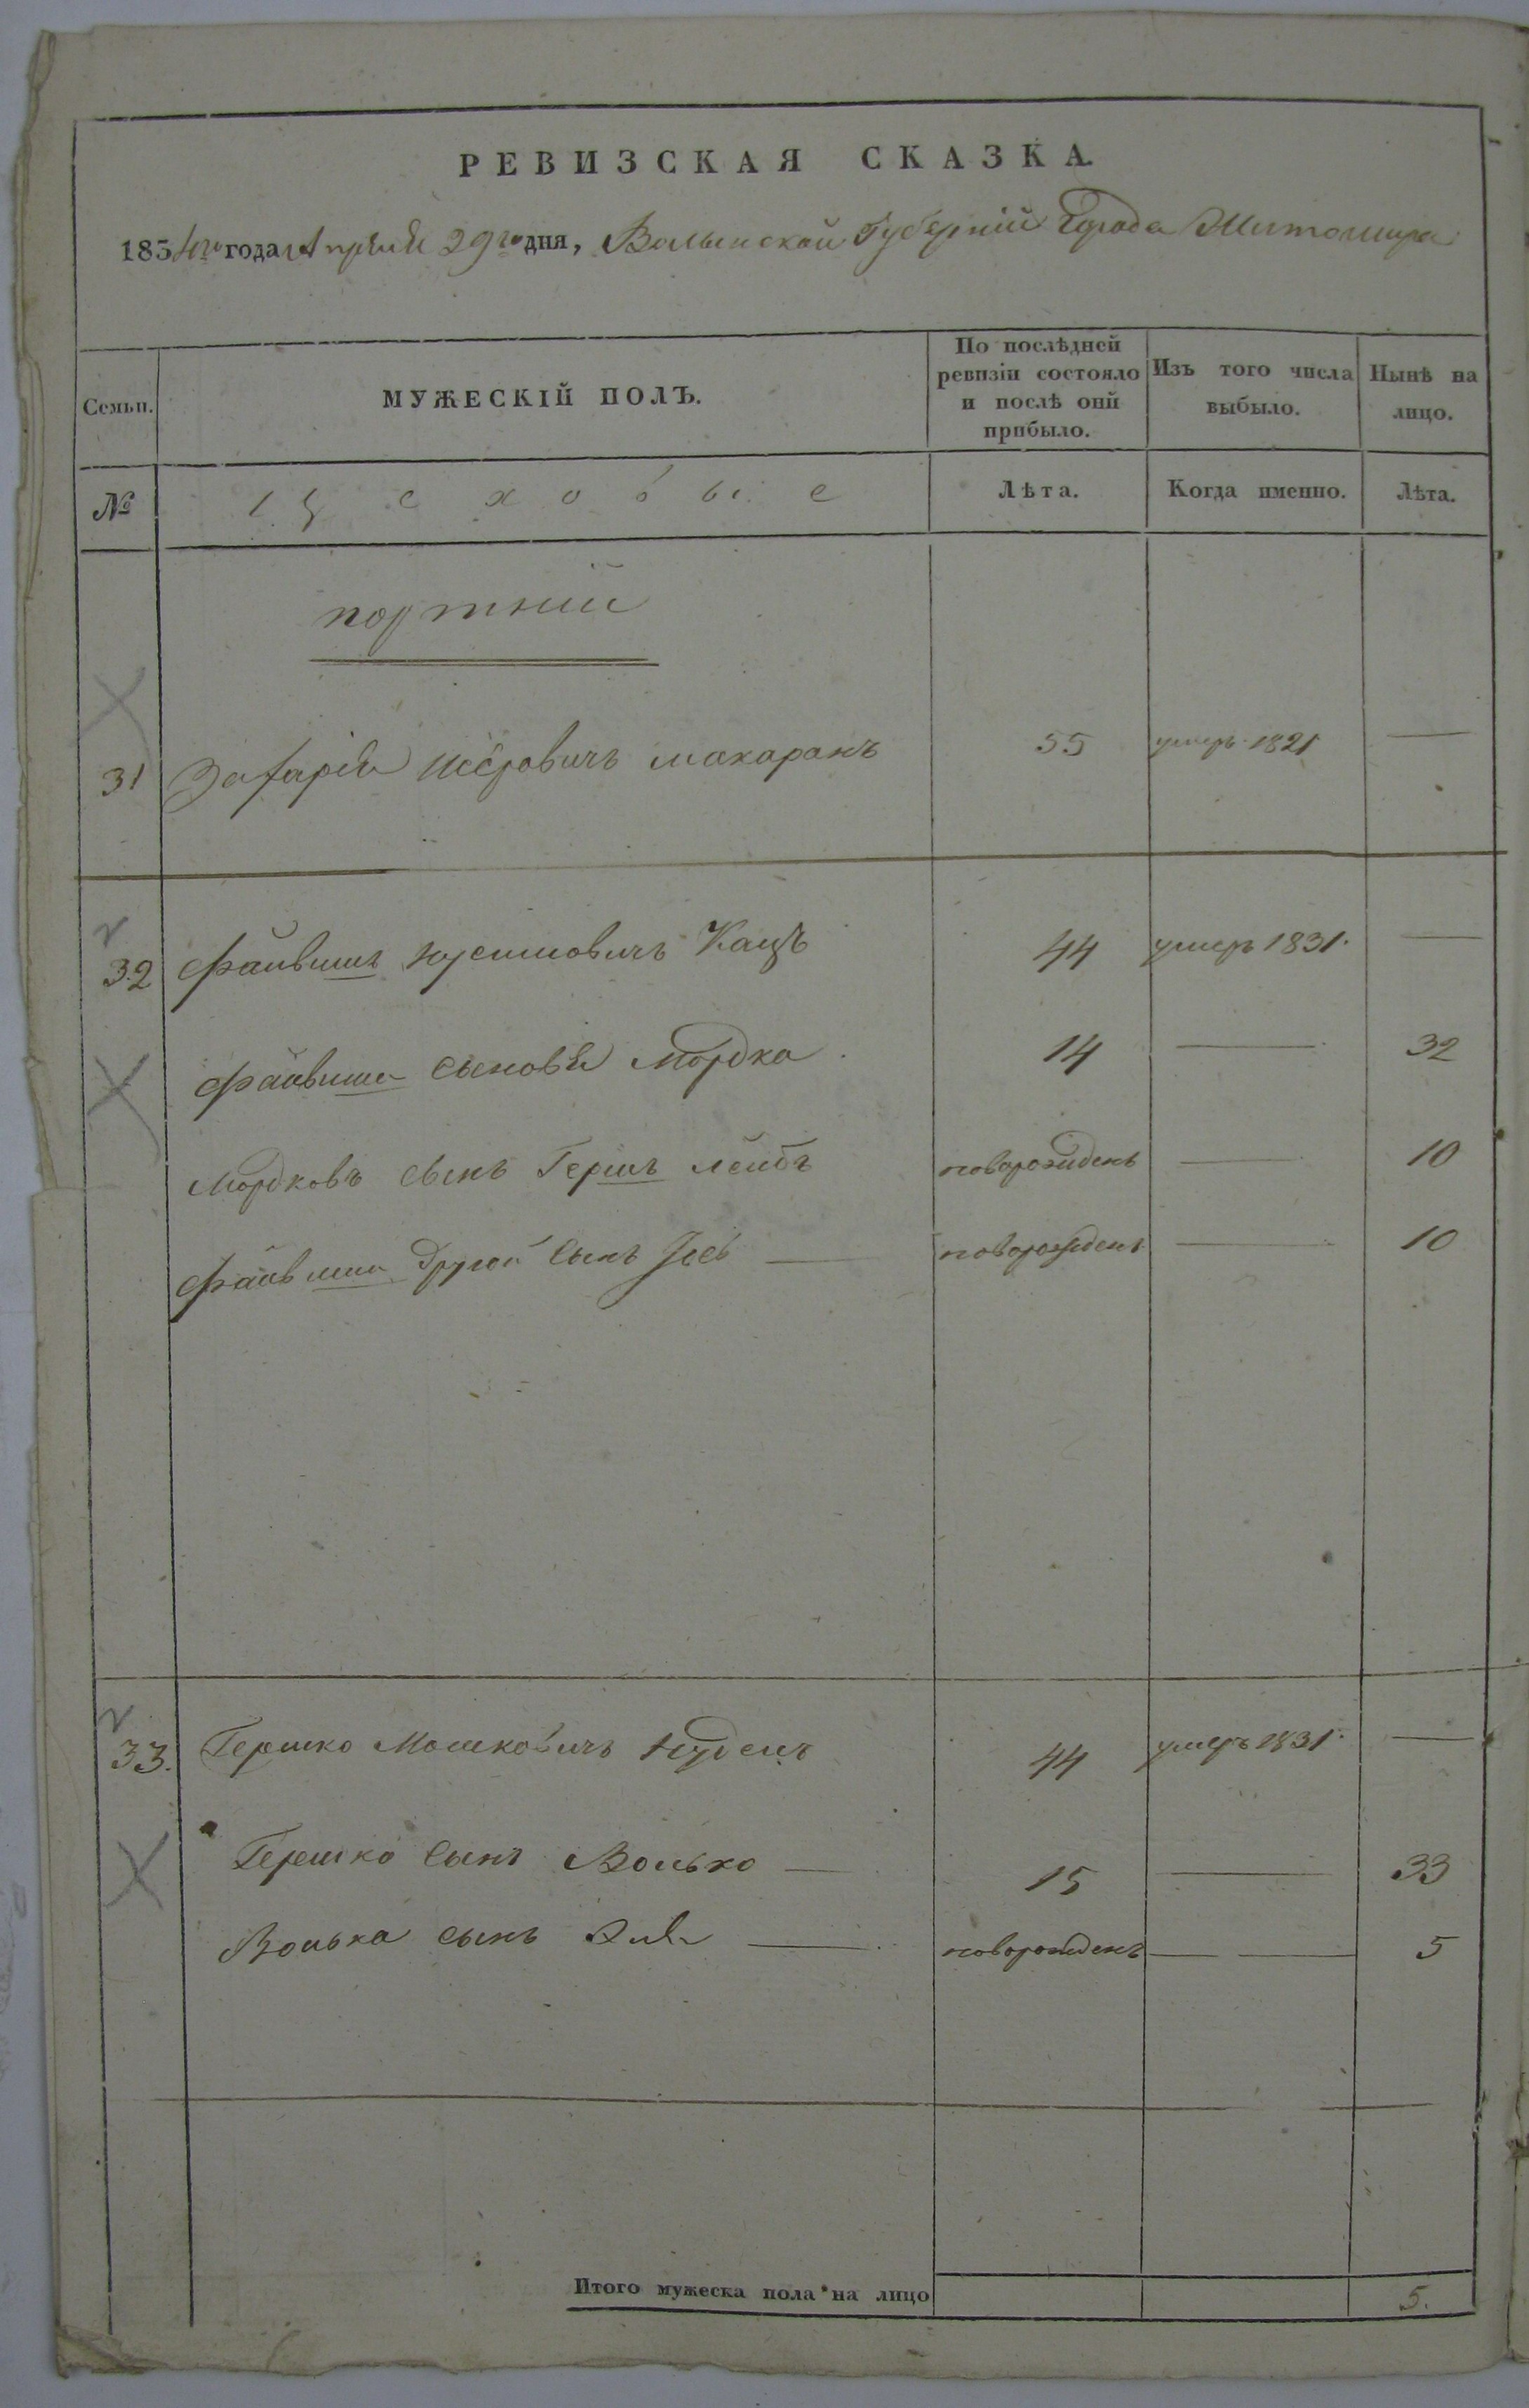 РЕВИЗСКАЯ СКАЗКА.
1834го года Апреля 29го дня, Волынской Губерніи Города Житомира
Семьи.
МУЖЕСКІЙ ПОЛЪ.
По послѣдней ревизіи состояло и послѣ оній прибыло.
Изъ того числа выбыло.
Нынѣ на лицо.
№
Цеховые
Лѣта.
Когда именно.
Лѣта.
портніи
31 Захарія макаранъ 55 умеръ 1821 —
32 Файвишъ Кацъ 44 умеръ 1831. —
Файвиша сыновья Мордко 14 — 32
Мордковъ сынъ Гершъ лейбъ новорожденъ — 10
Файвиша Другой сынъ новорожденъ — 10
33. Гершко Мошковичъ 44 умеръ 1831. —
Гершко сынъ Волько — 15 — 33
Волька сынъ — новорожденъ — — 5
Итого мужеска пола на лицо 5.